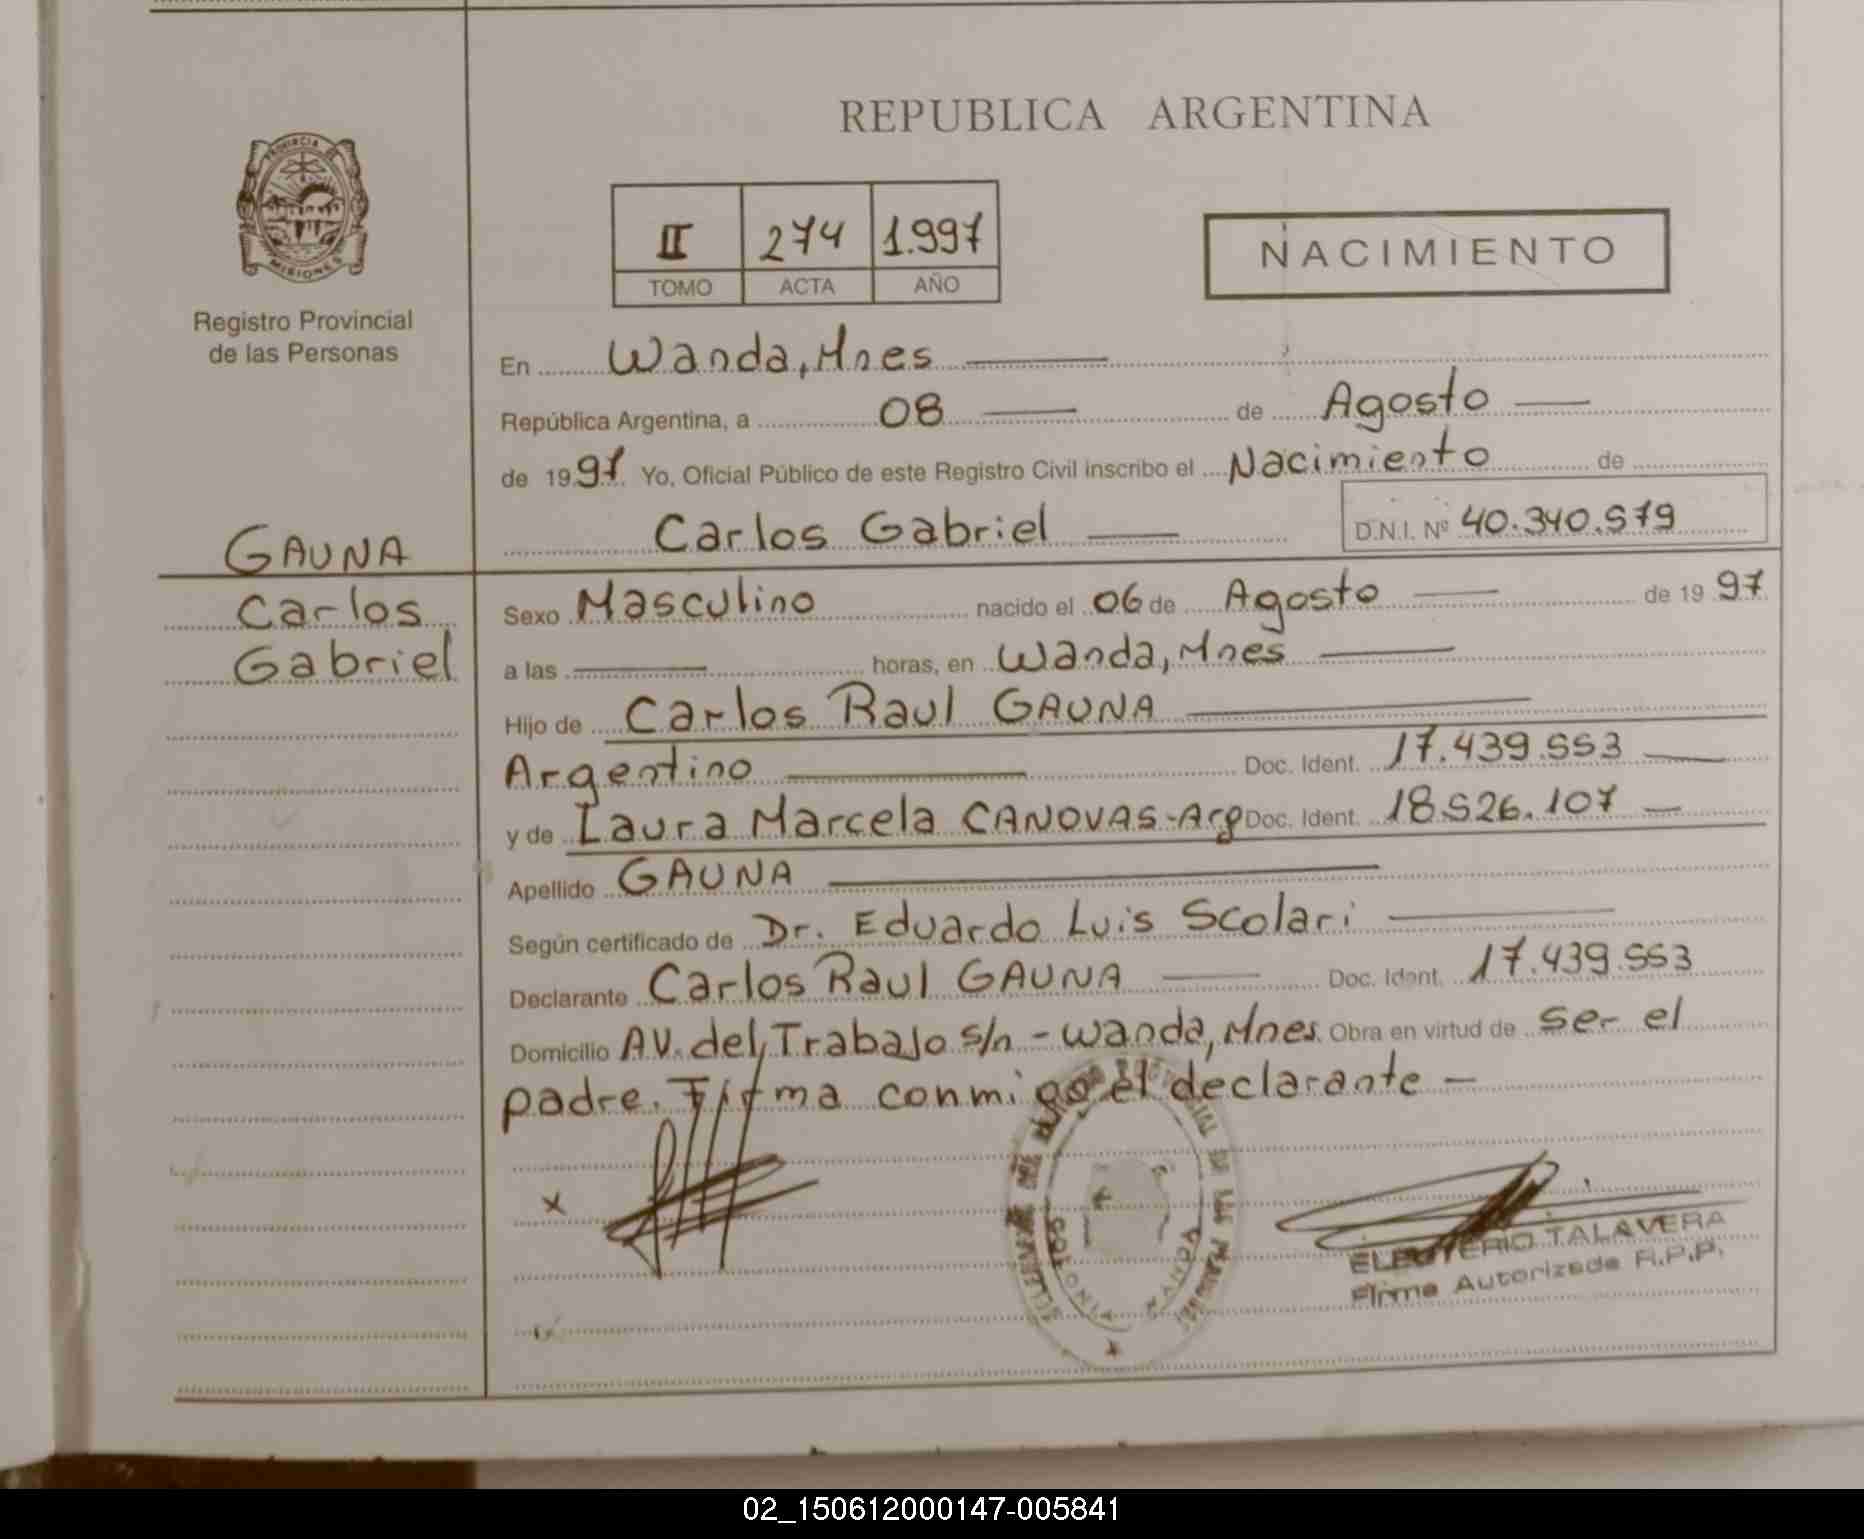 REPUBLICA ARGENTINA
PROVINCIA DE
MISIONES
Registro Provincial
de las Personas
II 274 1.997
TOMO ACTA AÑO
NACIMIENTO
En Wanda, Mnes
República Argentina, a 08 de Agosto
de 1997 Yo, Oficial Público de este Registro Civil inscribo el Nacimiento de
Carlos Gabriel D.N.I. Nº 40.340.579
GAUNA
Carlos
Gabriel
Sexo Masculino nacido el 06 de Agosto de 1997
a las horas, en Wanda, Mnes
Hijo de Carlos Raul GAUNA
Argentino Doc. Ident. 17.439.553
y de Laura Marcela CANOVAS-Arg Doc. Ident. 18.526.107
Apellido GAUNA
Según certificado de Dr. Eduardo Luis Scolari
Declarante Carlos Raul GAUNA Doc. Ident. 17.439.553
Domicilio AV. del Trabajo s/n - Wanda, Mnes. Obra en virtud de ser el
padre. Firma conmigo el declarante -
x
ELEUTERIO TALAVERA
Firma Autorizada R.P.P.
02_150612000147-005841